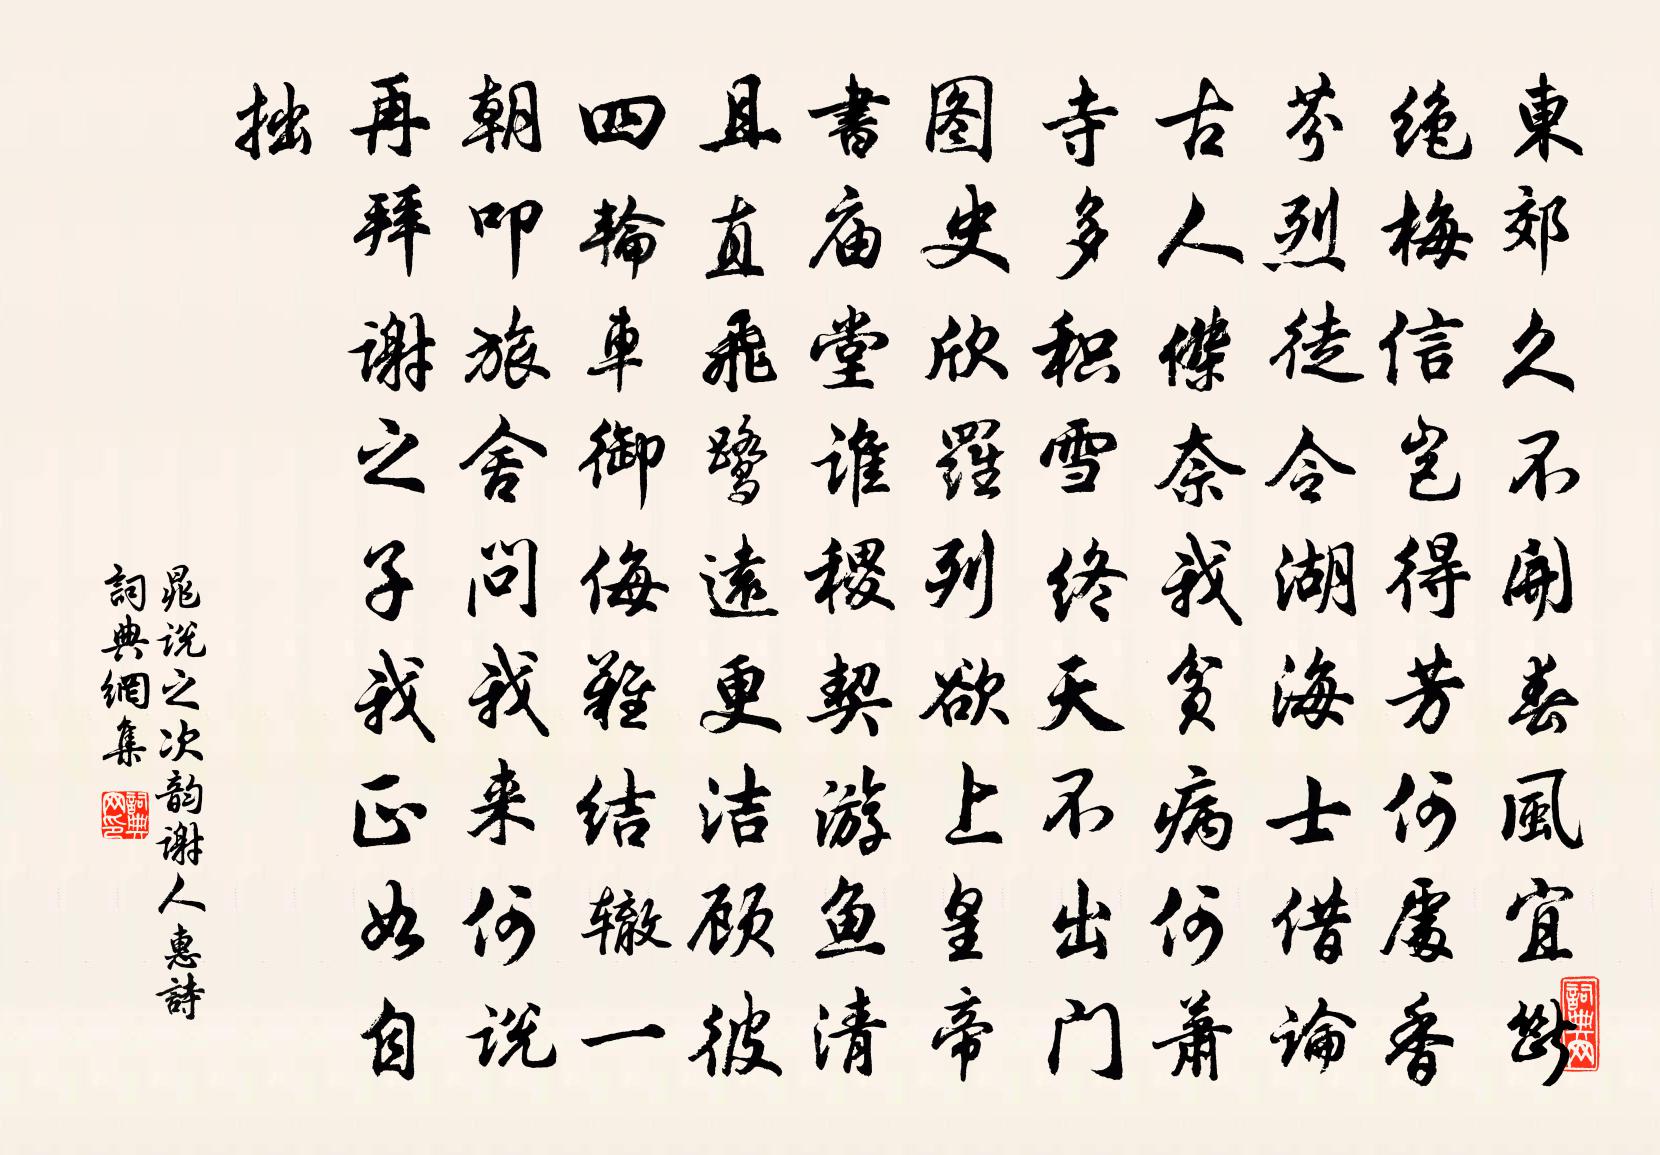 東郊久不開春風宜斷
絕梅信豈得芳何處香
芬烈徒令湖海士借論
古人傑奈我貧病何蕭
寺多积雪终天不出门
图史欣羅列欲上皇帝
書庙堂谁稷契游鱼清
且直飛鹭遠更洁顾彼
四輪車御侮難结辙一
朝叩旅舍问我来何说
再拜谢之子我正如自
拙
晁说之次韵谢人惠詩
詞典網集
詞典网印
詞典网